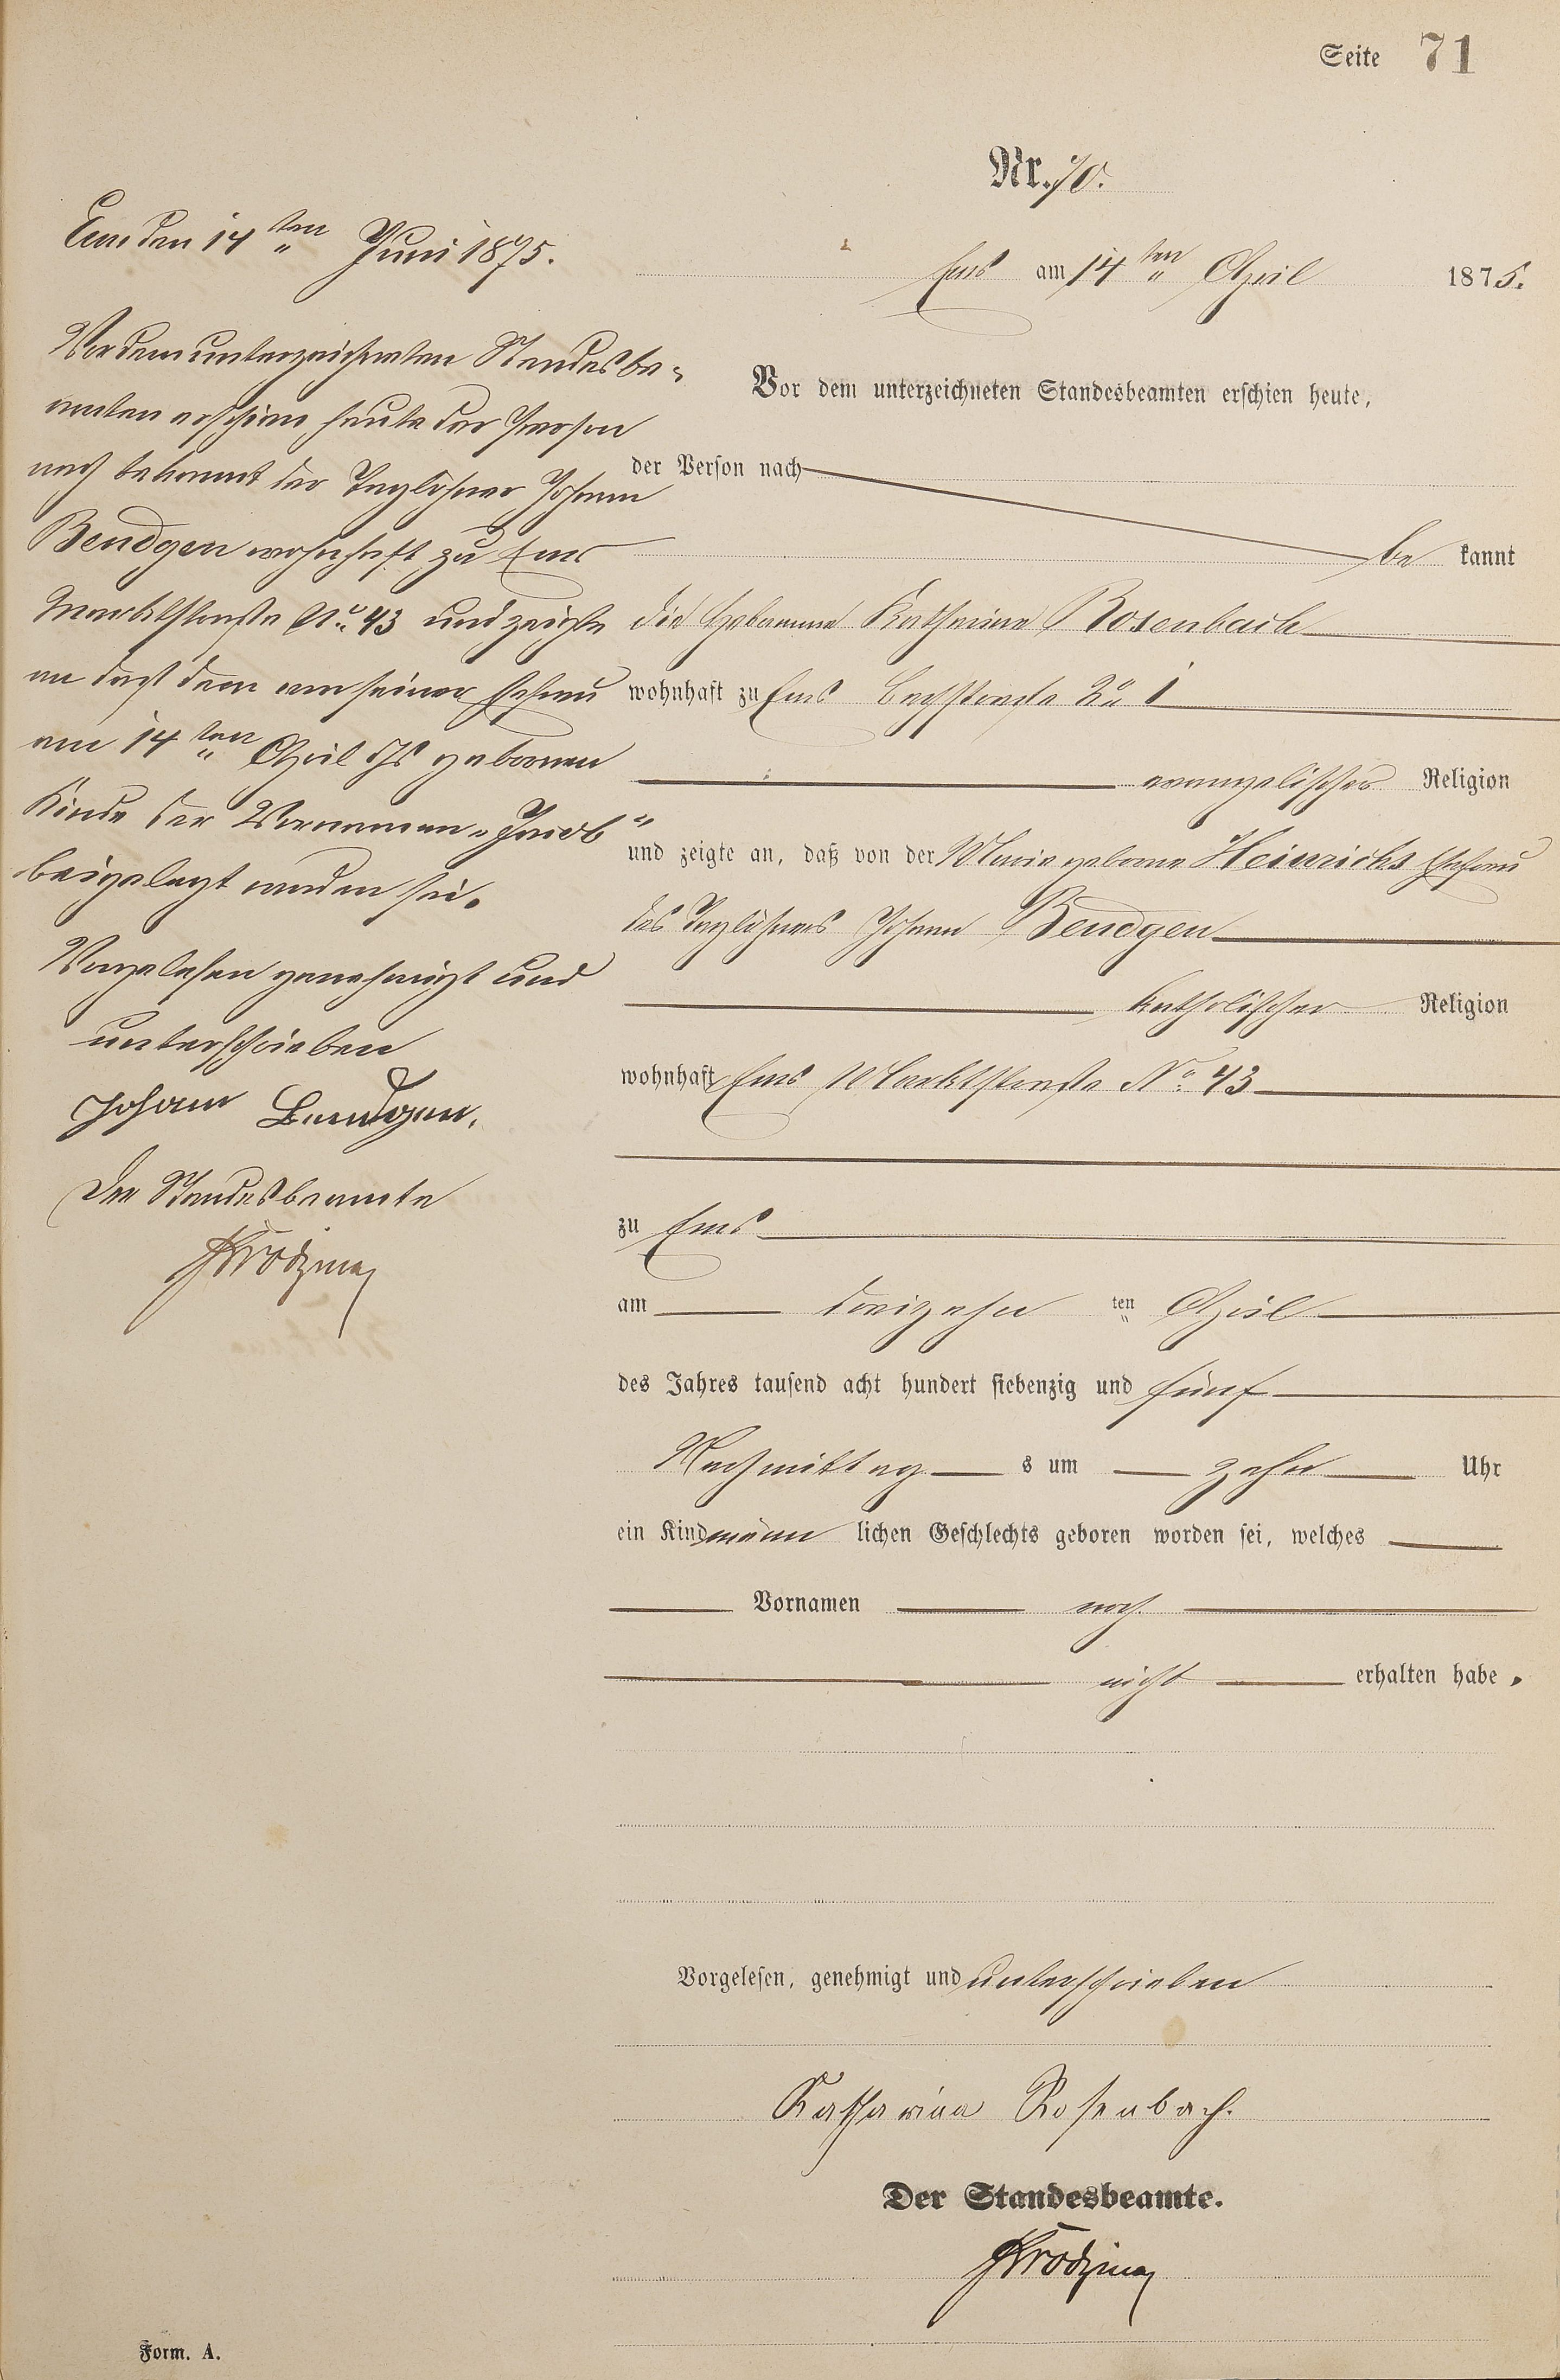 Seite 71
Nr. 70.
Ems am 14ten April 1875.
Vor dem unterzeichneten Standesbeamten erschien heute,
der Person nach
be kannt
die Hebamme Katharina Rosenbach
wohnhaft zu Ems Bachstraße No 1
evangelischer Religion
und zeigte an, daß von der Maria geborne Heinrichs Ehefrau
des Taglöhners Johann Bendgen
katholischer Religion
wohnhaft Ems Marktstraße No. 43
zu Ems
am dreizehn ten April
des Jahres tausend acht hundert siebenzig und fünf
Nachmittag s um zehn Uhr
ein Kind männ lichen Geschlechts geboren worden sei, welches
Vornamen noch
nicht erhalten habe.
Vorgelesen, genehmigt und unterschrieben
Katharina Rosenbach.
Der Standesbeamte.
Ems den 14ten Juni 1875.
Vor dem unterzeichneten Standesbe-
amten erschien heute der Person
nach bekannt der Taglöhner Johann
Bendgen wohnhaft zu Ems
Marktstraße No. 43 und zeigte
an daß dem von seiner Ehefrau
am 14ten April Js geborenen
Kinde der Vornamen "Jacob"
beigelegt worden sei.
Vorgelesen genehmigt und
unterschrieben
Johann Bendgen.
Der Standesbeamte
Form. A.